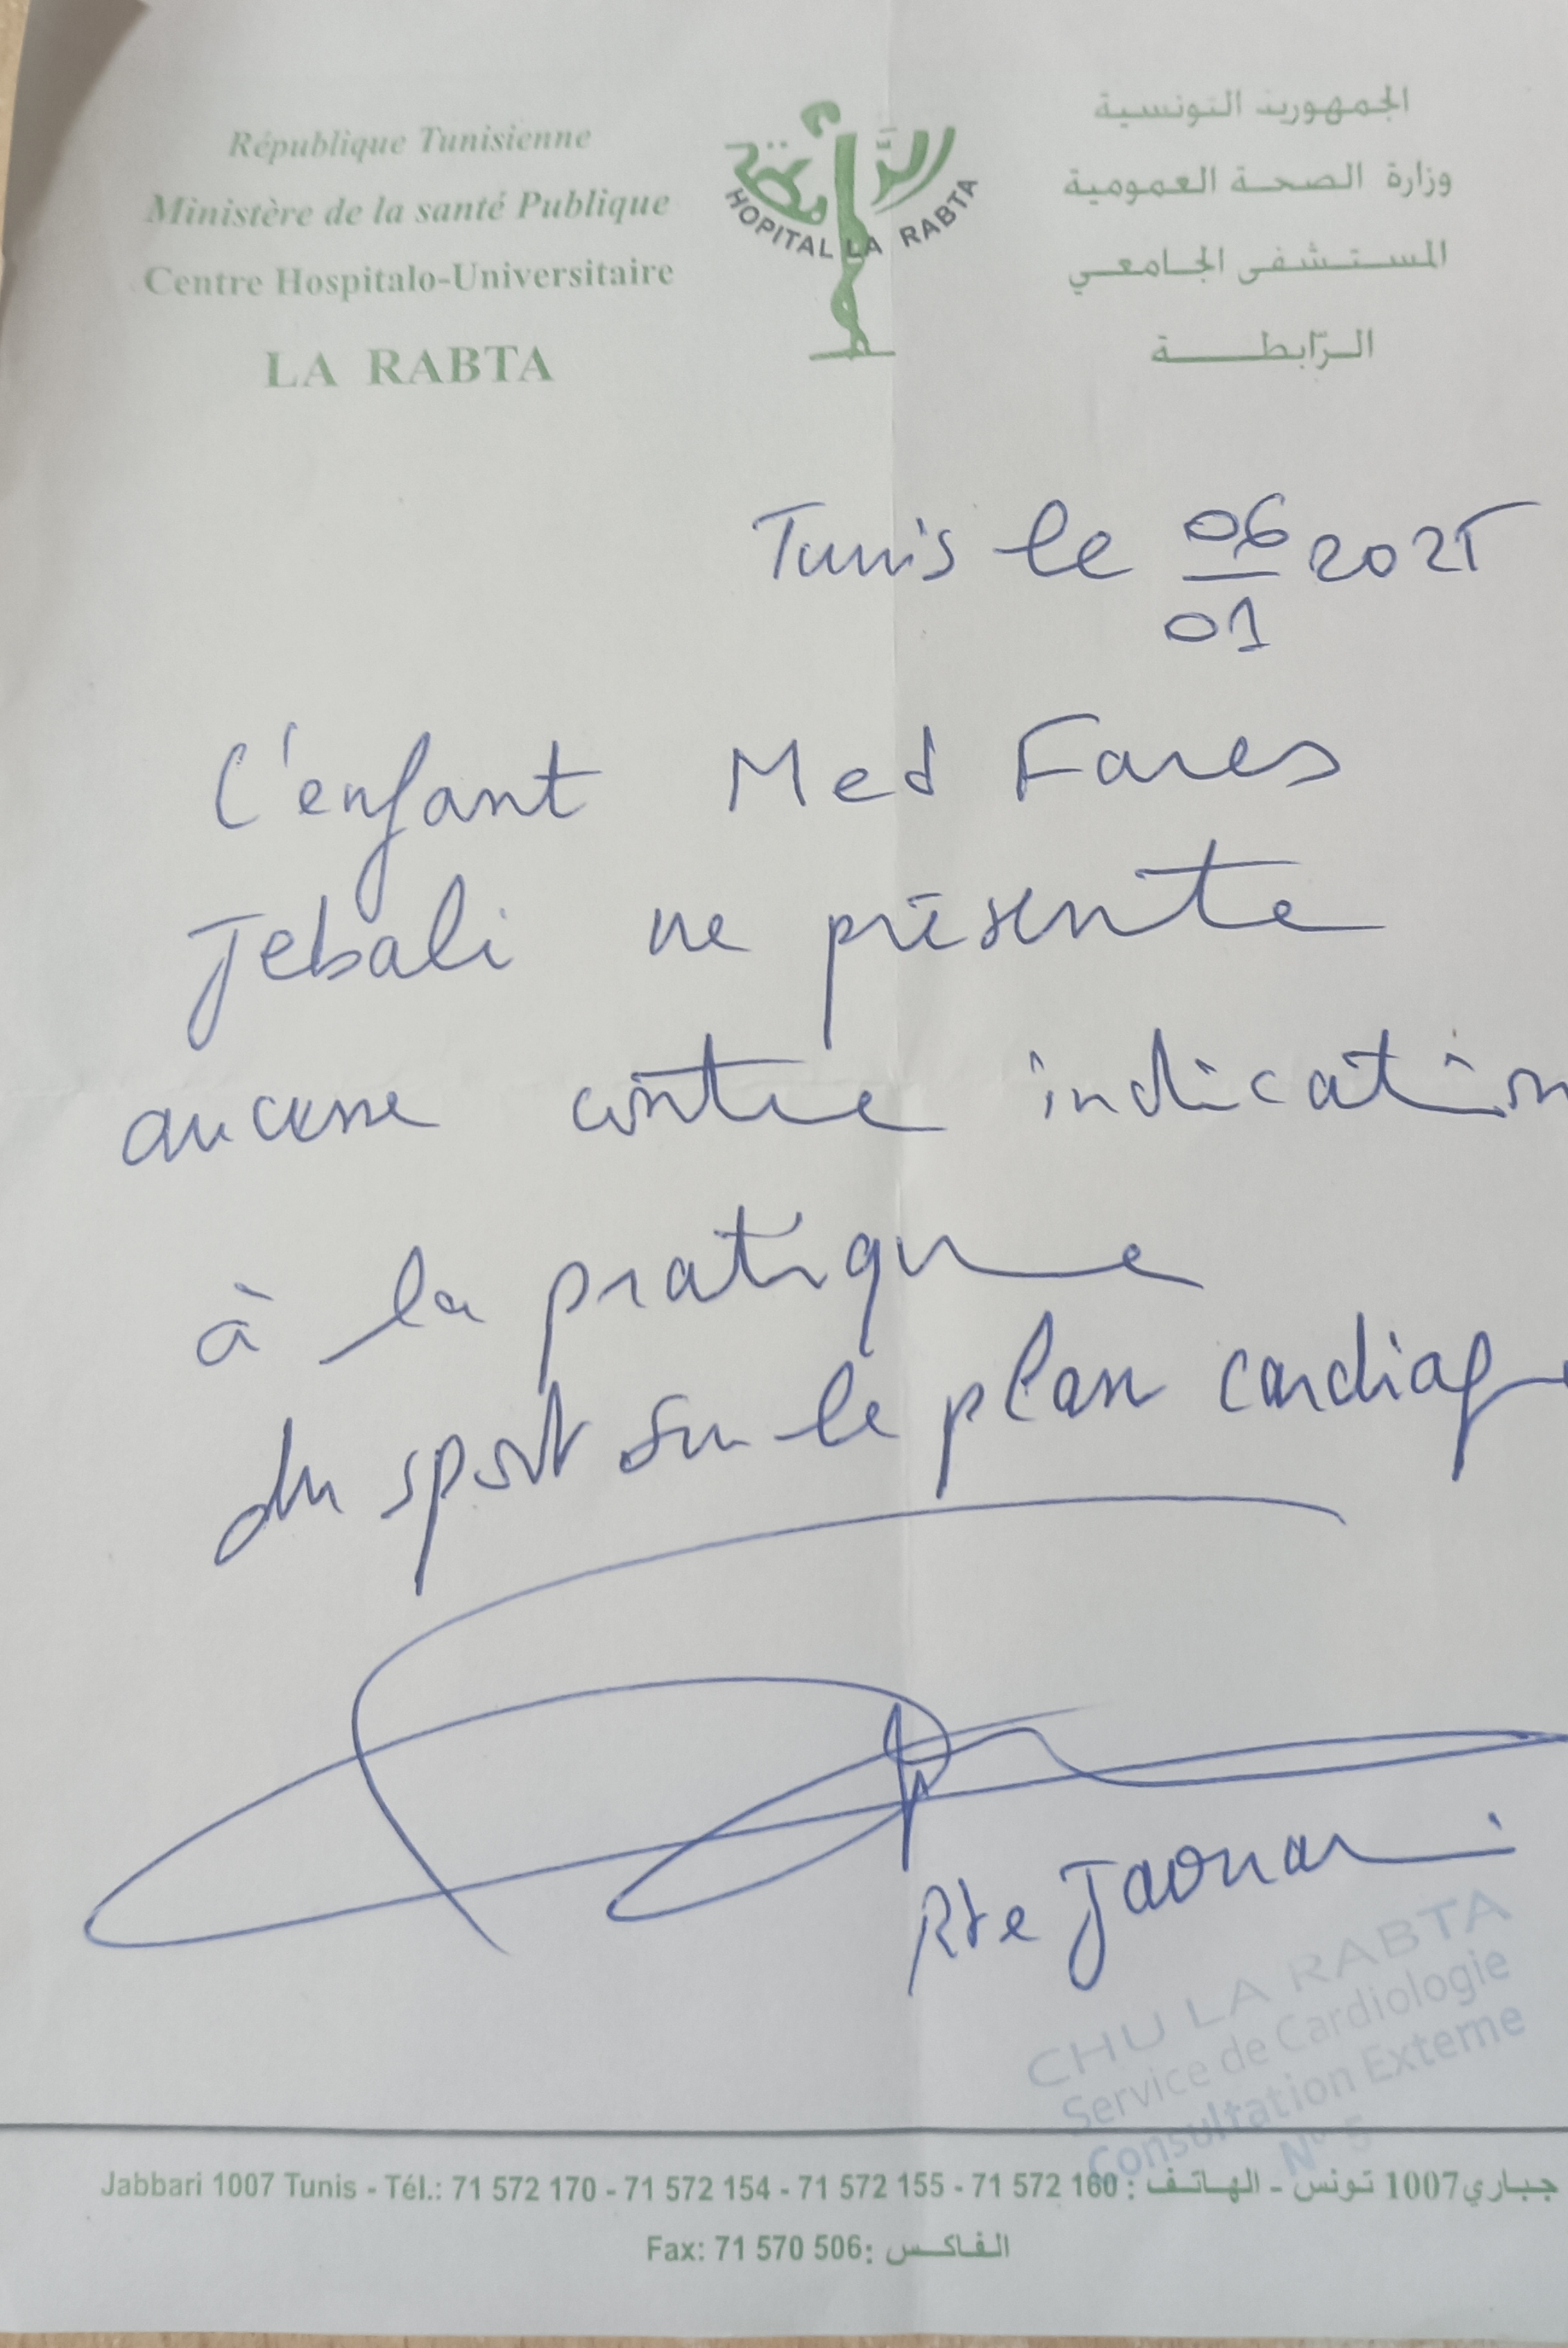 République Tunisienne
Ministère de la santé Publique
Centre Hospitalo-Universitaire
LA RABTA
الرابطة
HOPITAL LA RABTA
الجمهورية التونسية
وزارة الصحة العمومية
المستشفى الجامعي
الرّابطة
Tunis le 06/01 2025
L'enfant Med Fares
Jebali ne présente
aucune contre indication
à la pratique
du sport sur le plan cardiaque
Jaouar
CHU LA RABTA
Service de Cardiologie
Consultation Externe
N° 5
Jabbari 1007 Tunis - Tél.: 71 572 170 - 71 572 154 - 71 572 155 - 71 572 160 : جباري 1007 تونس - الهاتف
Fax: 71 570 506: الفاكس